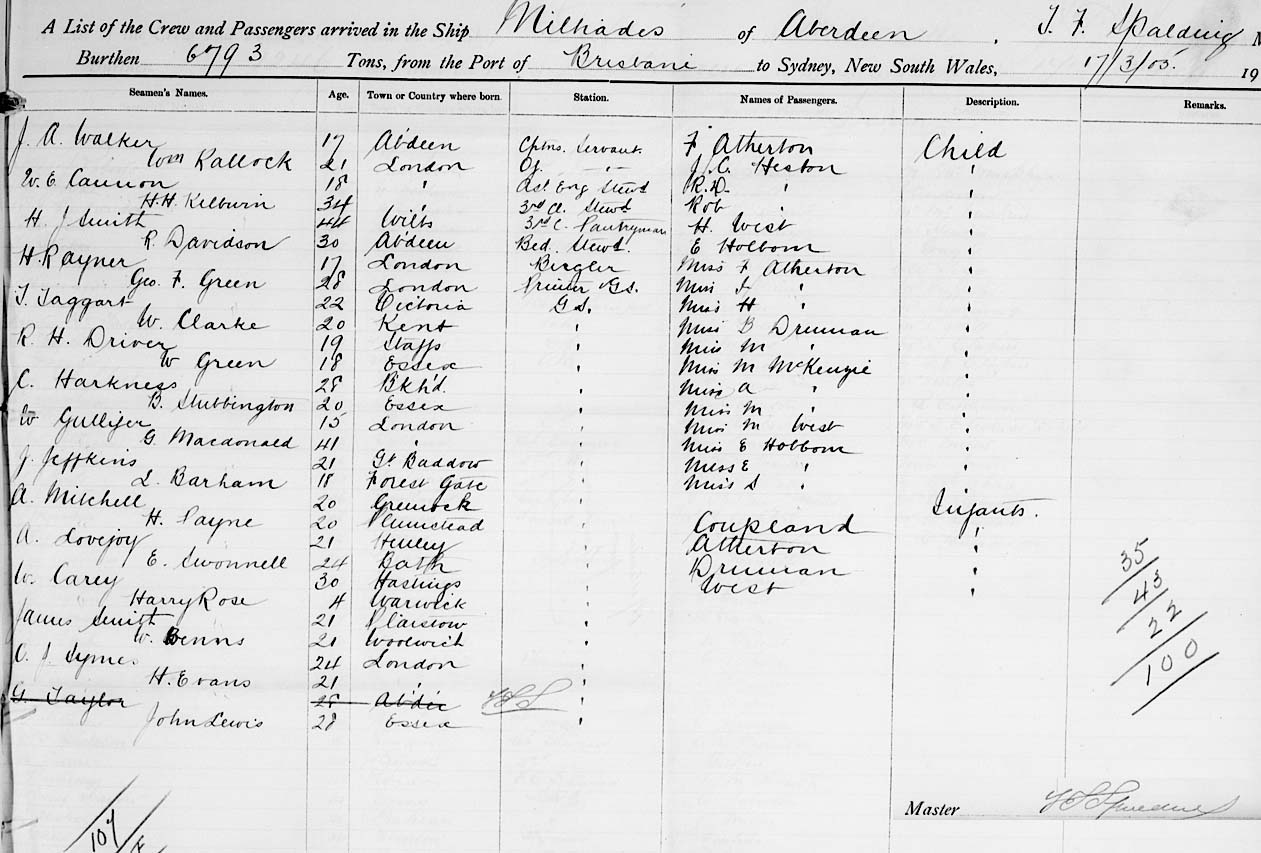 A List of the Crew and Passengers arrived in the Ship Miltiades of Aberdeen, T. F. Spalding M
Burthen 6793 Tons, from the Port of Brisbane to Sydney, New South Wales, 17/3/05. 19
Seamen's Names. Age. Town or Country where born. Station. Names of Passengers. Description. Remarks.
J. A. Walker 17 Ab'deen Cptns. Servant F Atherton Child
Wm Rallock 21 London J. C. Heston '
W. E. Cannon 18 ' Ast Eng Stewd R. D. ' '
H. H. Kilburn 34 ' 3rd Cl. Stewd Rob ' '
H. J Smith 44 Wilts 3rd C. Pantryman H. West '
R. Davidson 30 Ab'deen Bed. Stewd. E Holbom '
H. Rayner 17 London Bugler Miss F Atherton '
Geo. F. Green 28 London G.S. Miss ' '
T. Taggart 22 Victoria G.S. Miss H ' '
W. Clarke 20 Kent ' Miss B Drennan '
R. H. Driver 19 Staffs ' Miss M ' '
W Green 18 Essex ' Miss M McKenzie '
C. Harkness 28 Bkh'd. ' Miss A ' '
B. Stubbington 20 Essex ' Miss M ' '
W Gulliver 15 London ' Miss M West '
G. Macdonald 41 ' ' Miss E Holbom '
J. Jeffkins 21 Gt. Baddow ' Miss E ' '
L. Barham 18 Forest Gate ' Miss S ' '
A. Mitchell 20 Greenock '
H. Payne 20 Plumstead ' Coupland Infants.
A. Lovejoy 21 Henley ' Atherton '
E. Swonnell 24 Bath ' Drennan '
W. Carey 30 Hastings ' West '
Harry Rose 4 Warwick '
James Smith 21 Plaistow '
W. Benns 21 Woolwich '
O. J. Symes 24 London '
H. Evans 21 ' '
G. Taylor 28 Ab'd '
John Lewis 28 Essex '
35
43
22
100
107
Master